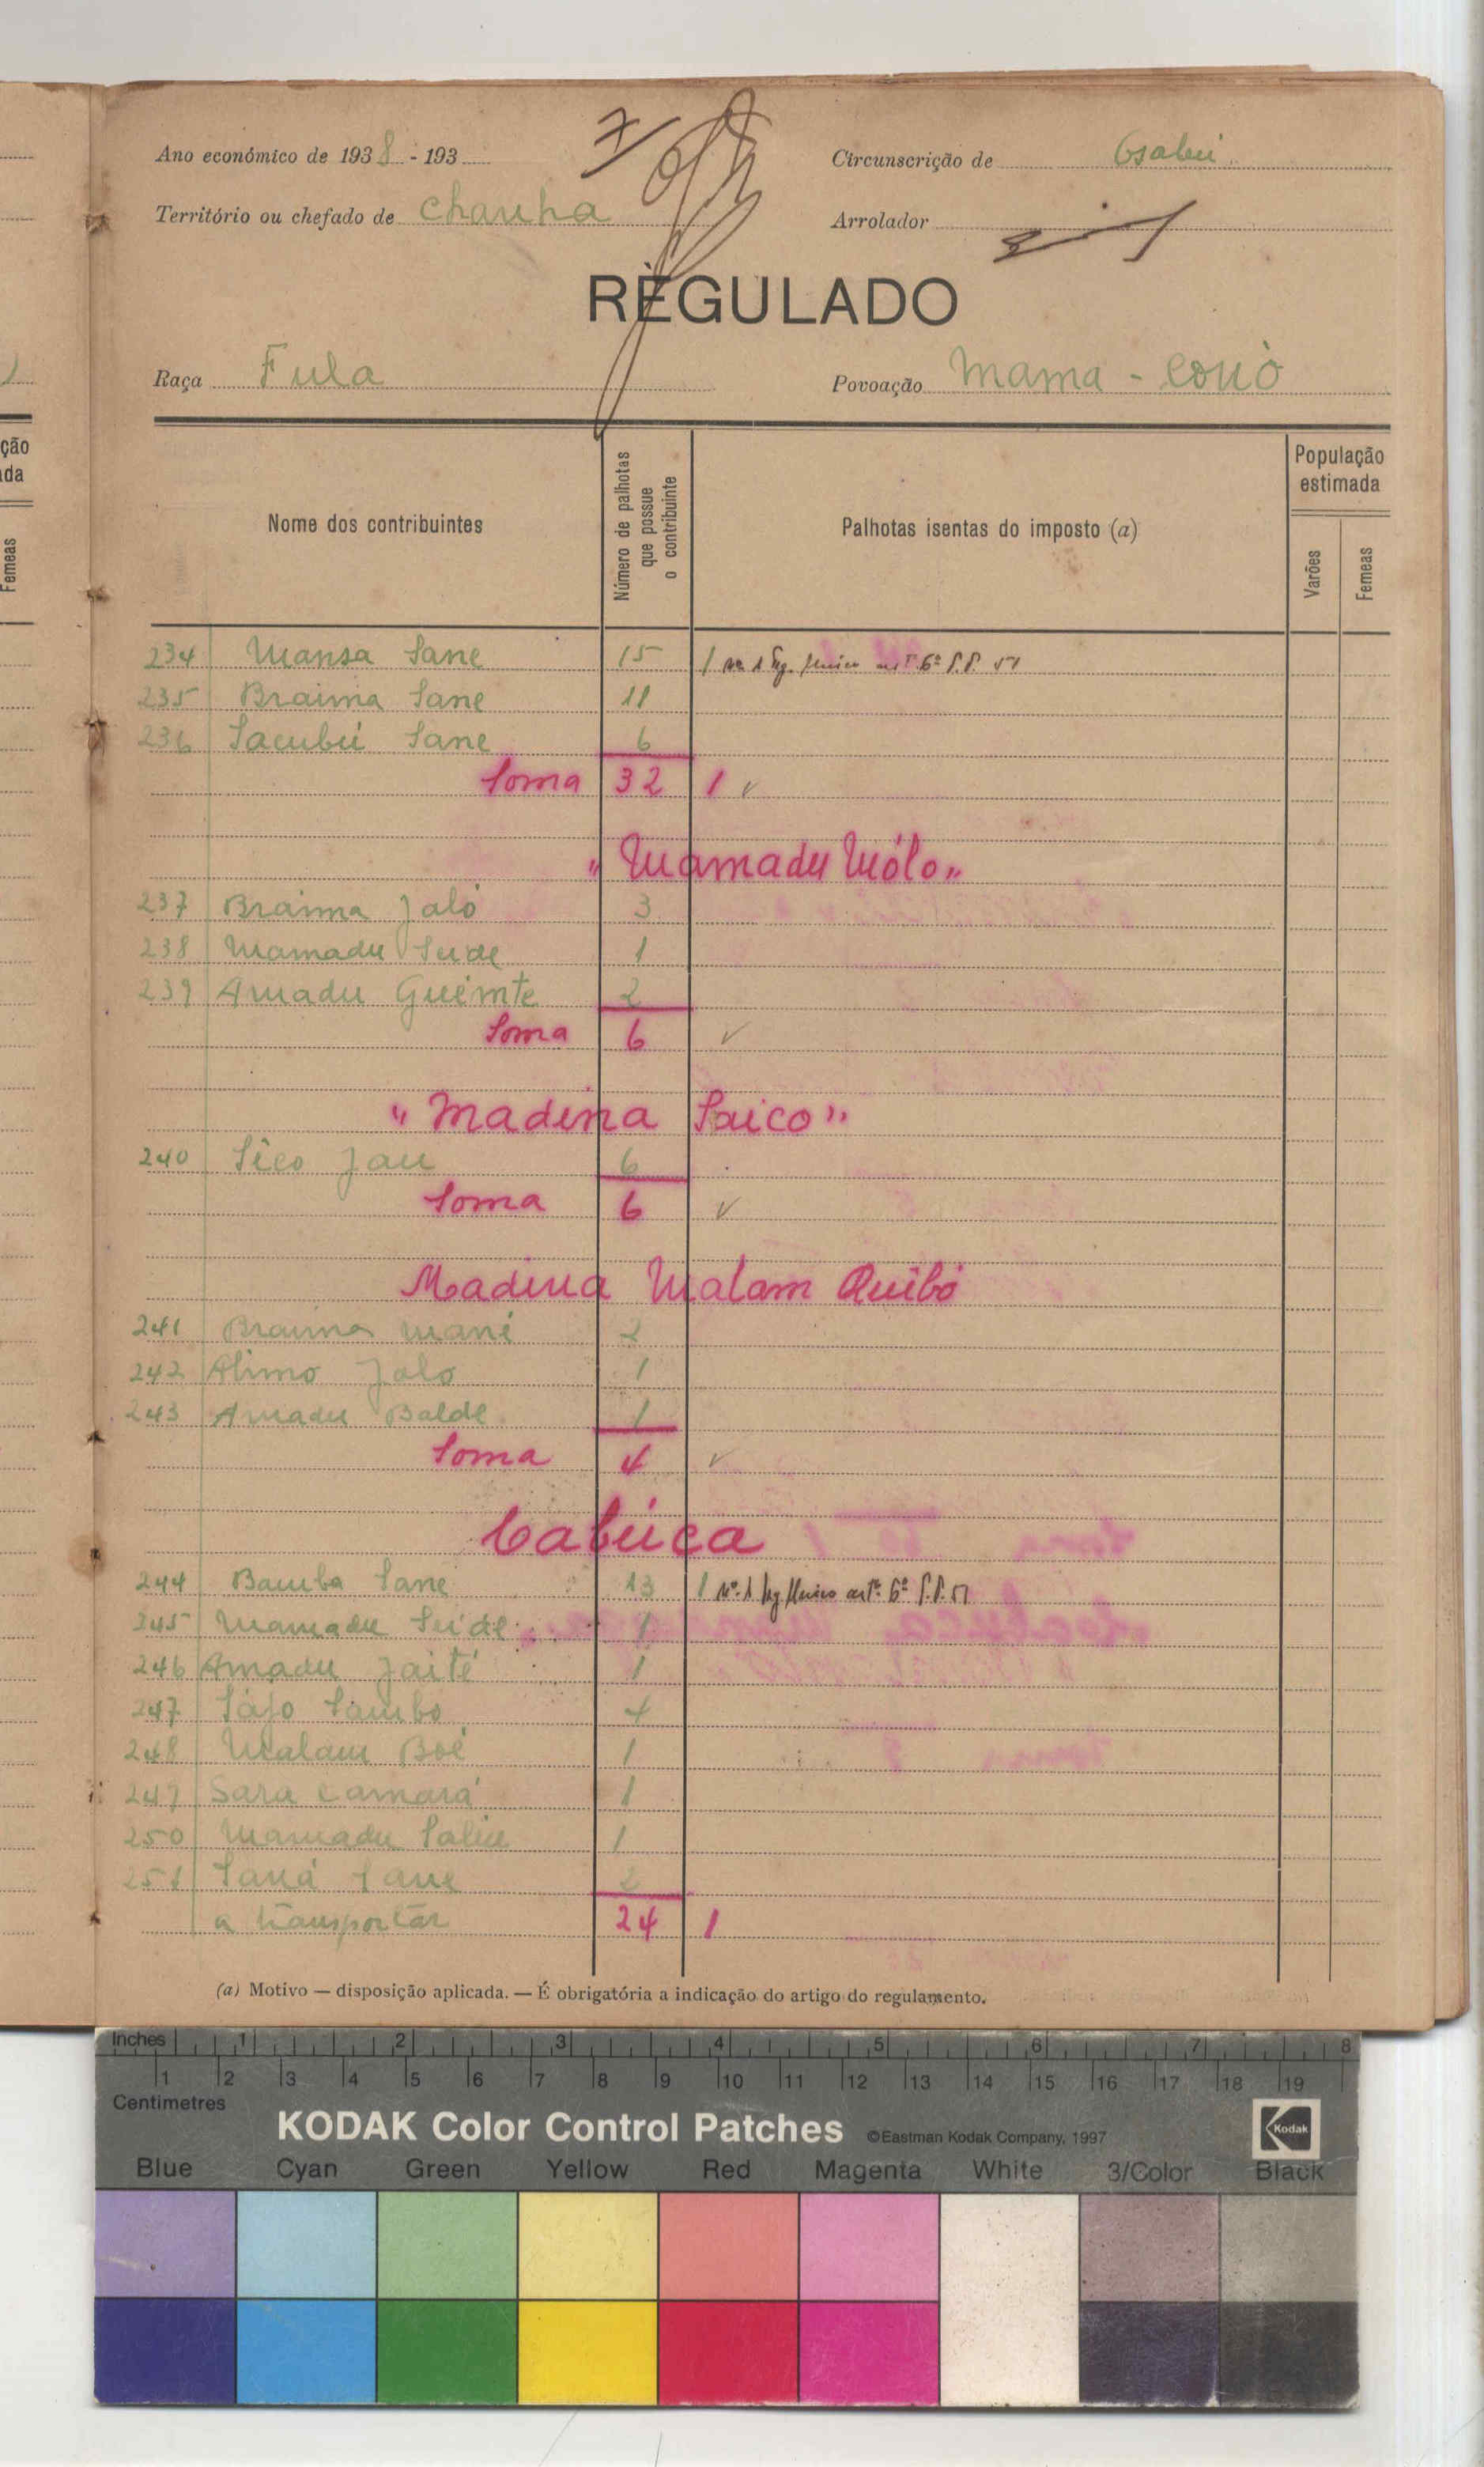 Ano económico de 1938 - 193
7
Circunscrição de Gabú
Território ou chefado de Chanha
Arrolador
REGULADO
Raça Fula
Povoação Mama - Conò
Nome dos contribuintes
Número de palhotas que possue o contribuinte
Palhotas isentas do imposto (a)
População estimada
Varões
Femeas
234 Mansa Sane 15 1
235 Braima Sane 11
236 Sacubú Sane 6
Soma 32 1
"Mamadu Mólo"
237 Braima Jaló 3
238 Mamadu Seide 1
239 Amadu Gueimte 2
Soma 6
"Madina Saico"
240 Sêco Jau 6
Soma 6
Madina Malam Quibó
241 Braima Mané 2
242 Alimo Jalo 1
243 Amadu Balde 1
Soma 4
Cabúca
244 Bamba Sane 13 1
245 Mamadu Seide 1
246 Amadu Jaité 1
247 Sájo Sambo 4
248 Malam Boé 1
249 Sara Camará 1
250 Mamadu Saliu 1
251 Saná Sane 2
a transportar 24 1
(a) Motivo — disposição aplicada. — É obrigatória a indicação do artigo do regulamento.
ção
da
Femeas
Inches 1 2 3 4 5 6 7 8
1 2 3 4 5 6 7 8 9 10 11 12 13 14 15 16 17 18 19
Centimetres
KODAK Color Control Patches ©Eastman Kodak Company, 1997 Kodak
Blue Cyan Green Yellow Red Magenta White 3/Color Black